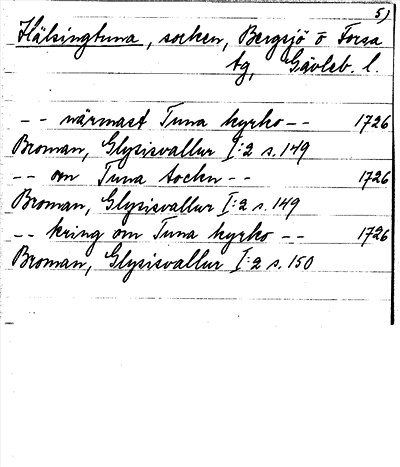 5)
Hälsingtuna, socken, Bergsjö o Forsa
tg, Gävleb. l.
-- närmast Tuna kyrko -- 1726
Broman, Glysisvallur I:2 s. 149
-- om Tuna sochn -- 1726
Broman, Glysisvallur I:2 s. 149
-- kring om Tuna kyrko -- 1726
Broman, Glysisvallur I:2 s. 150